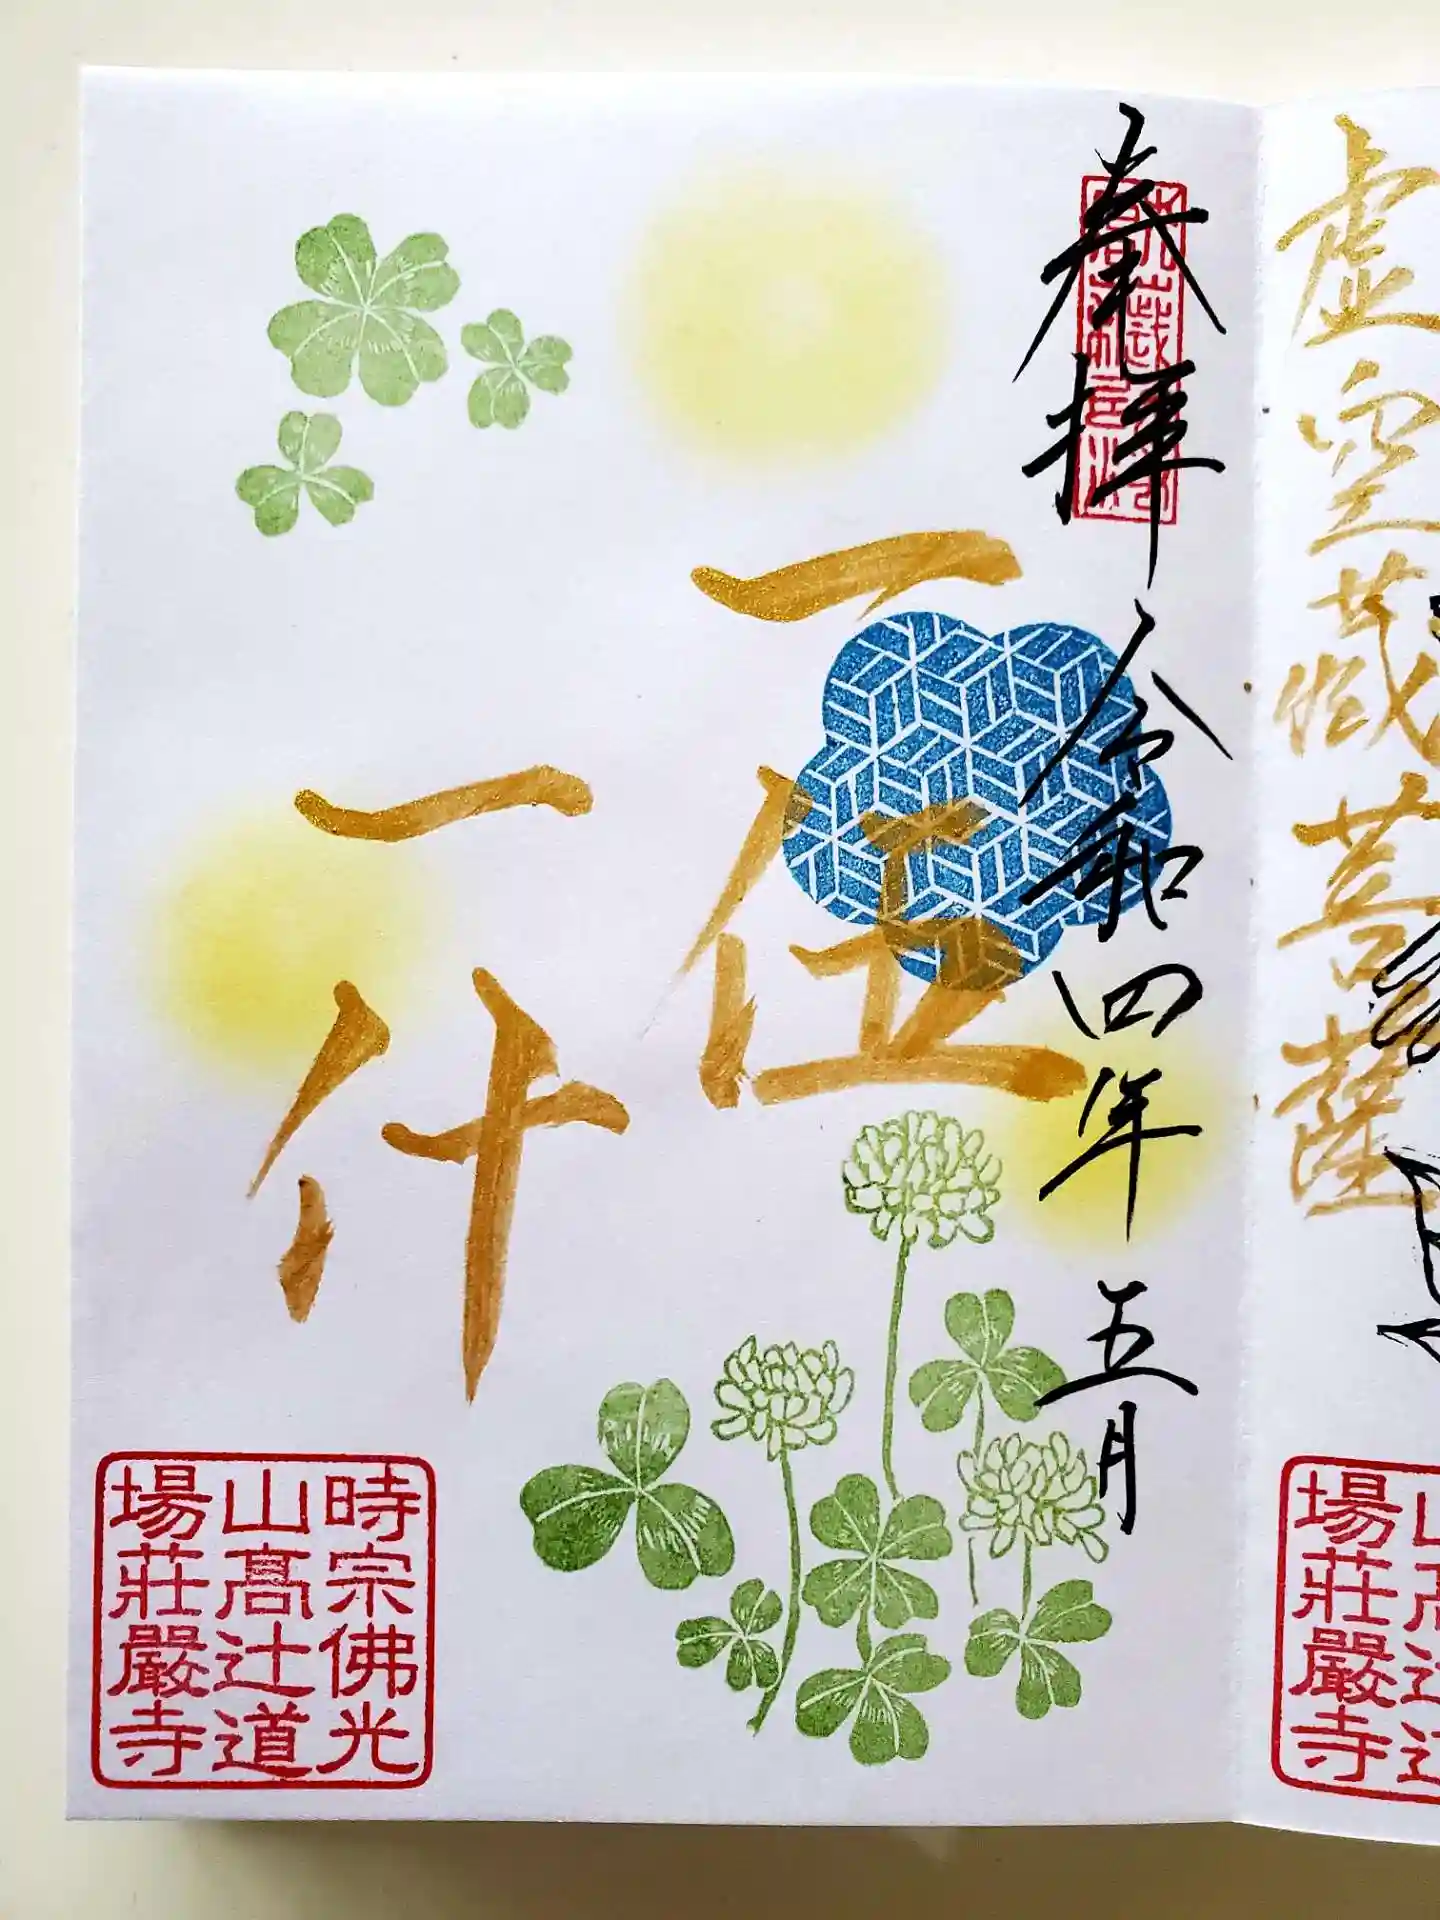 虚空蔵菩薩
奉拝 令和四年 五月
一伍
一什
時宗佛光
山高辻道
場莊嚴寺
場莊嚴寺